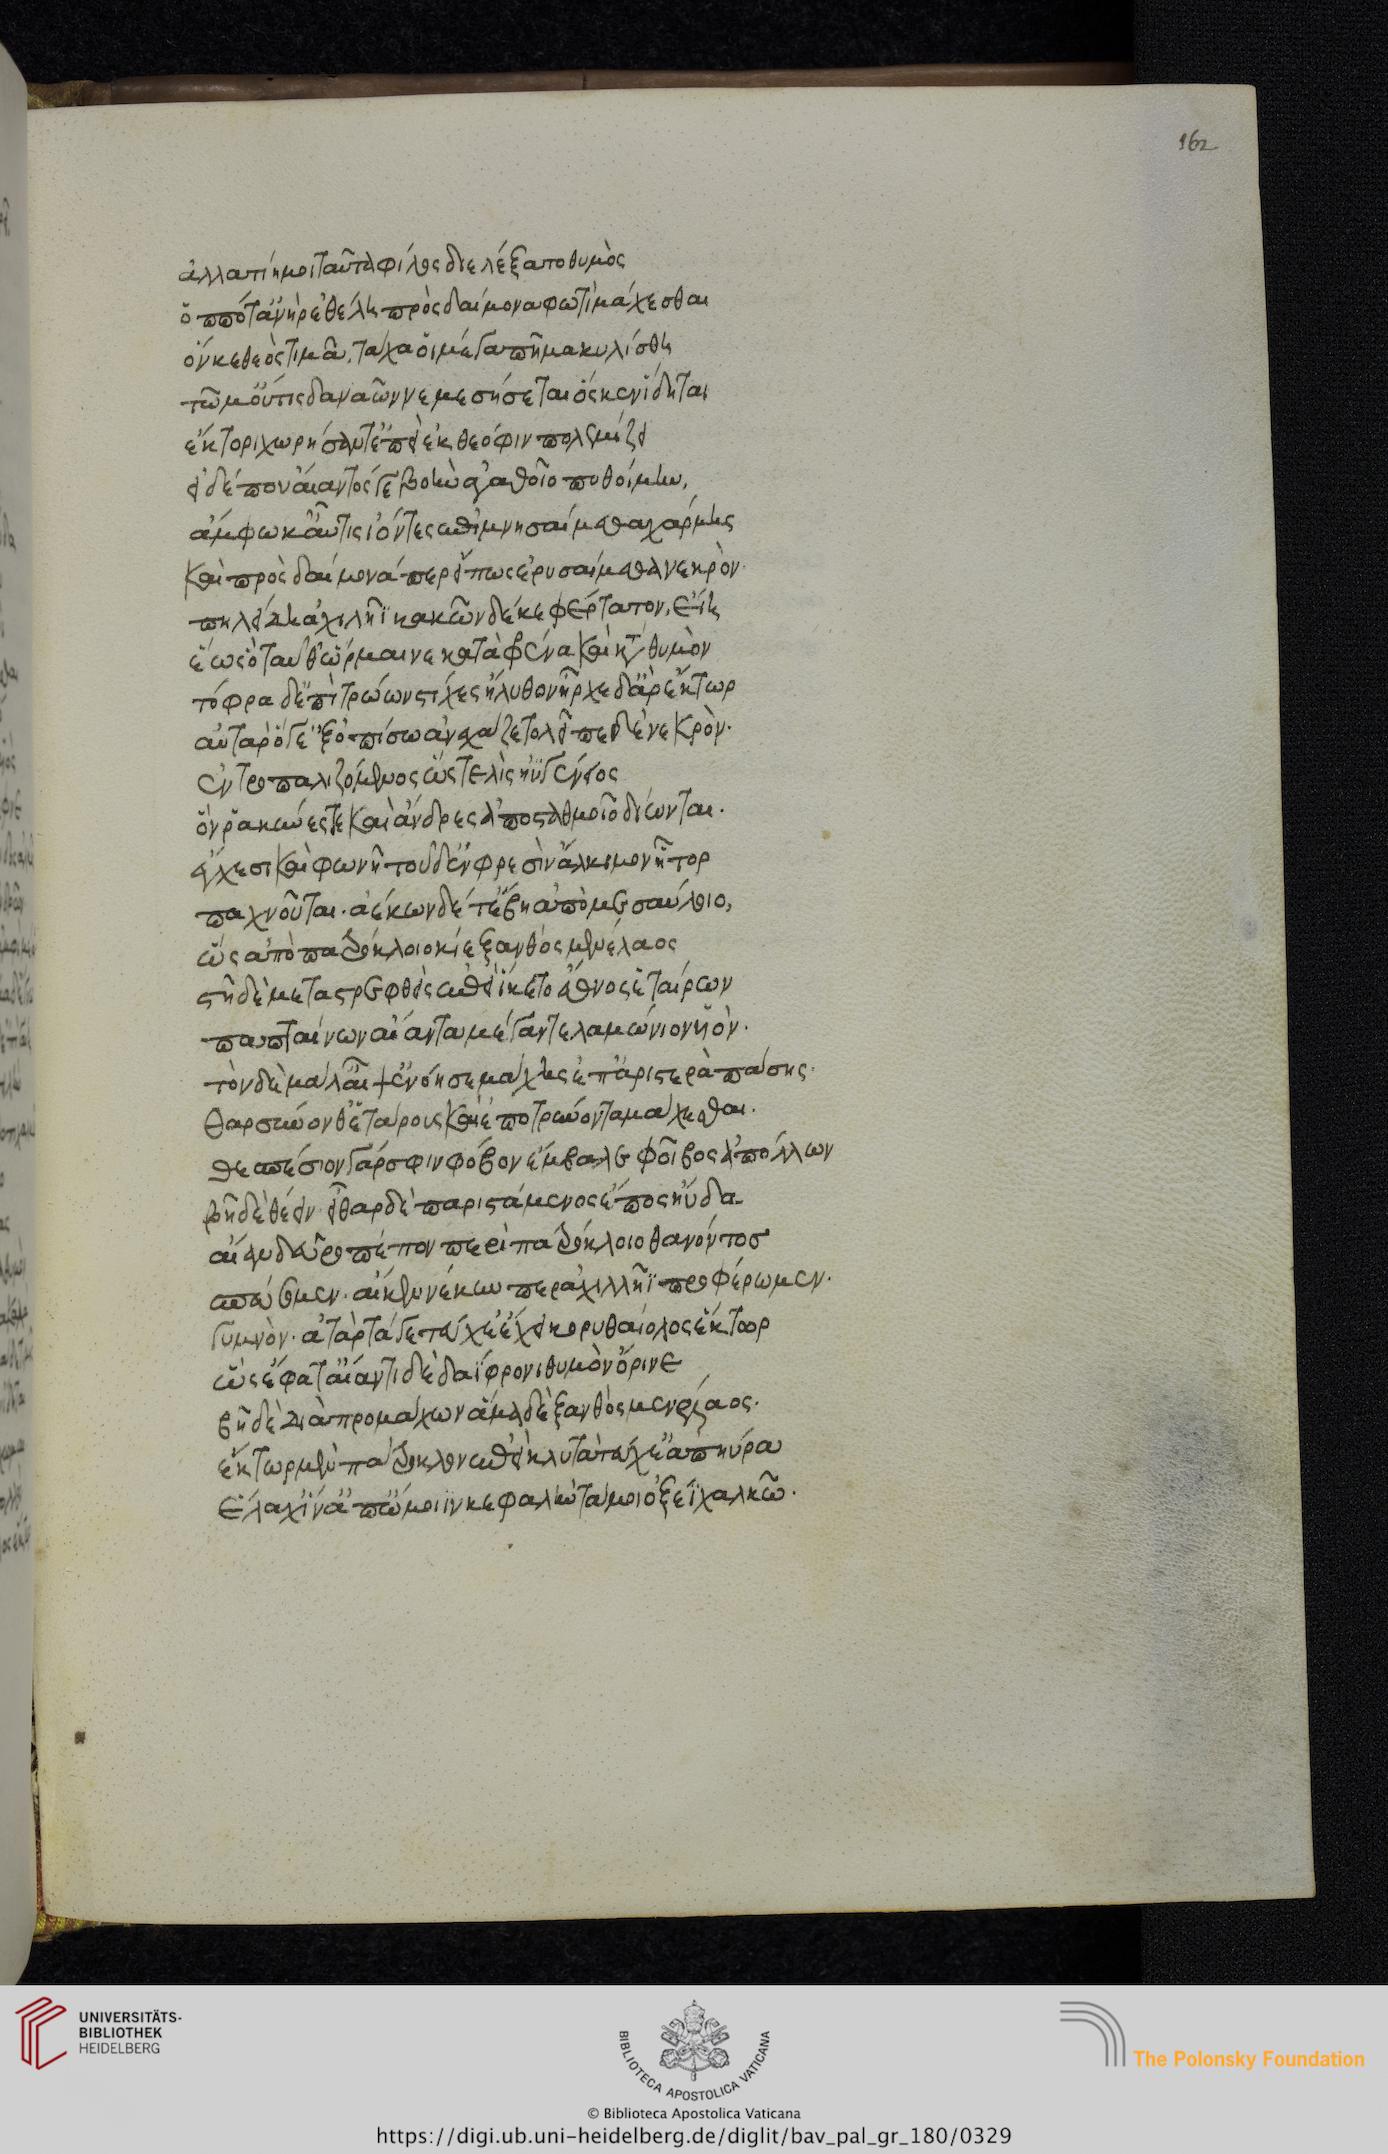 162
ἀλλατίημοι ταῦτα φίλος διελέξατο θυμὸς
ὁππότ' ἀνὴρ ἐθέλη πρὸς δαίμονα φωτὶ μάχεσθαι
ὅν κε θεὸς τιμᾶ, τάχα οἱ μέγα πῆμα κυλίσθη
τῶ μ' οὔτις δαναῶν νεμεσήσεται ὅς κεν ἴδηται
ἕκτορι χωρήσαντ' ἐπεὶ ἐκ θεόφιν πολεμίζει
εἰ δέ που αἴαντός γε βοὴν ἀγαθοῖο πυθοίμην,
ἄμφω κ' αὖτις ἰόντες ἐπιμνησαίμεθα χάρμης
καὶ πρὸς δαίμονά περ εἴ πως ἐρυσαίμεθα νεκρὸν.
πηλείδη ἀχιλῆϊ κακῶν δέ κε φέρτατον, εἴη
ἕως ὁ ταῦθ' ὥρμαινε κατὰ φρένα καὶ κατὰ θυμὸν
τόφρα δ' ἐπὶ τρώων στίχες ἤλυθον ἦρχε δ' ἄρ ἕκτωρ
αὐτὰρ ὅ γ' ἐξοπίσω ἀνεχάζετο λεῖπε δὲ νεκρὸν.
ἐντροπαλιζόμενος ὥς τε λὶς ἠϋγένειος
ὅν ῥα κύνες τε καὶ ἄνδρες ἀπο σταθμοῖο δίωνται.
ἔγχεσι καὶ φωνῆ τοῦ δ' ἐν φρεσὶν ἄλκιμον ἦτορ
παχνοῦται. ἀέκων δέ τ' ἔβη ἀπὸ μεσαύλοιο,
ὥς ἀπὸ πατρόκλοιο κίε ξανθὸς μενέλαος
στῆ δὲ μεταστρεφθεὶς ἐπεὶ ἵκετο ἔθνος ἑταίρων
παπταίνων αἴαντα μέγαν τελαμώνιον υἱὸν.
τὸν δὲ μάλ' αἶψ' ἐνόησε μάχης ἐπ' ἀριστερὰ πάσης.
θαρσύνονθ' ἑτάρους καὶ ἐποτρύνοντα μάχεσθαι.
θεσπέσιον γάρ σφιν φόβον ἔμβαλε φοῖβος ἀπόλλων
βῆ δὲ θέειν. εἶθαρ δὲ παριστάμενος ἔπος ηὔδα.
αἶαν δεῦρο πέπον περὶ πατρόκλοιο θανόντος
σπεύσομεν. αἴ κε νέκυν περ ἀχιλλῆϊ προφέρωμεν.
γυμνὸν. ἀτὰρ τά γε τεύχε' ἔχει κορυθαίολος ἕκτωρ
ὥς ἔφατ' αἴαντι δὲ δαΐφρονι θυμὸν ὄρινε
βῆ δὲ διὰ προμάχων ἅμα δὲ ξανθὸς μενέλαος.
ἕκτωρ μὲν πάτροκλον ἐπεὶ κλυτὰ τεύχε' ἀπηύρα
ἕλχ' ἵν' ἀπ' ὤμοιϊν κεφαλὴν τάμοι ὀξέϊ χαλκῶ.
UNIVERSITÄTS-
BIBLIOTHEK
HEIDELBERG
BIBLIOTECA APOSTOLICA VATICANA
The Polonsky Foundation
© Biblioteca Apostolica Vaticana
https://digi.ub.uni-heidelberg.de/diglit/bav_pal_gr_180/0329